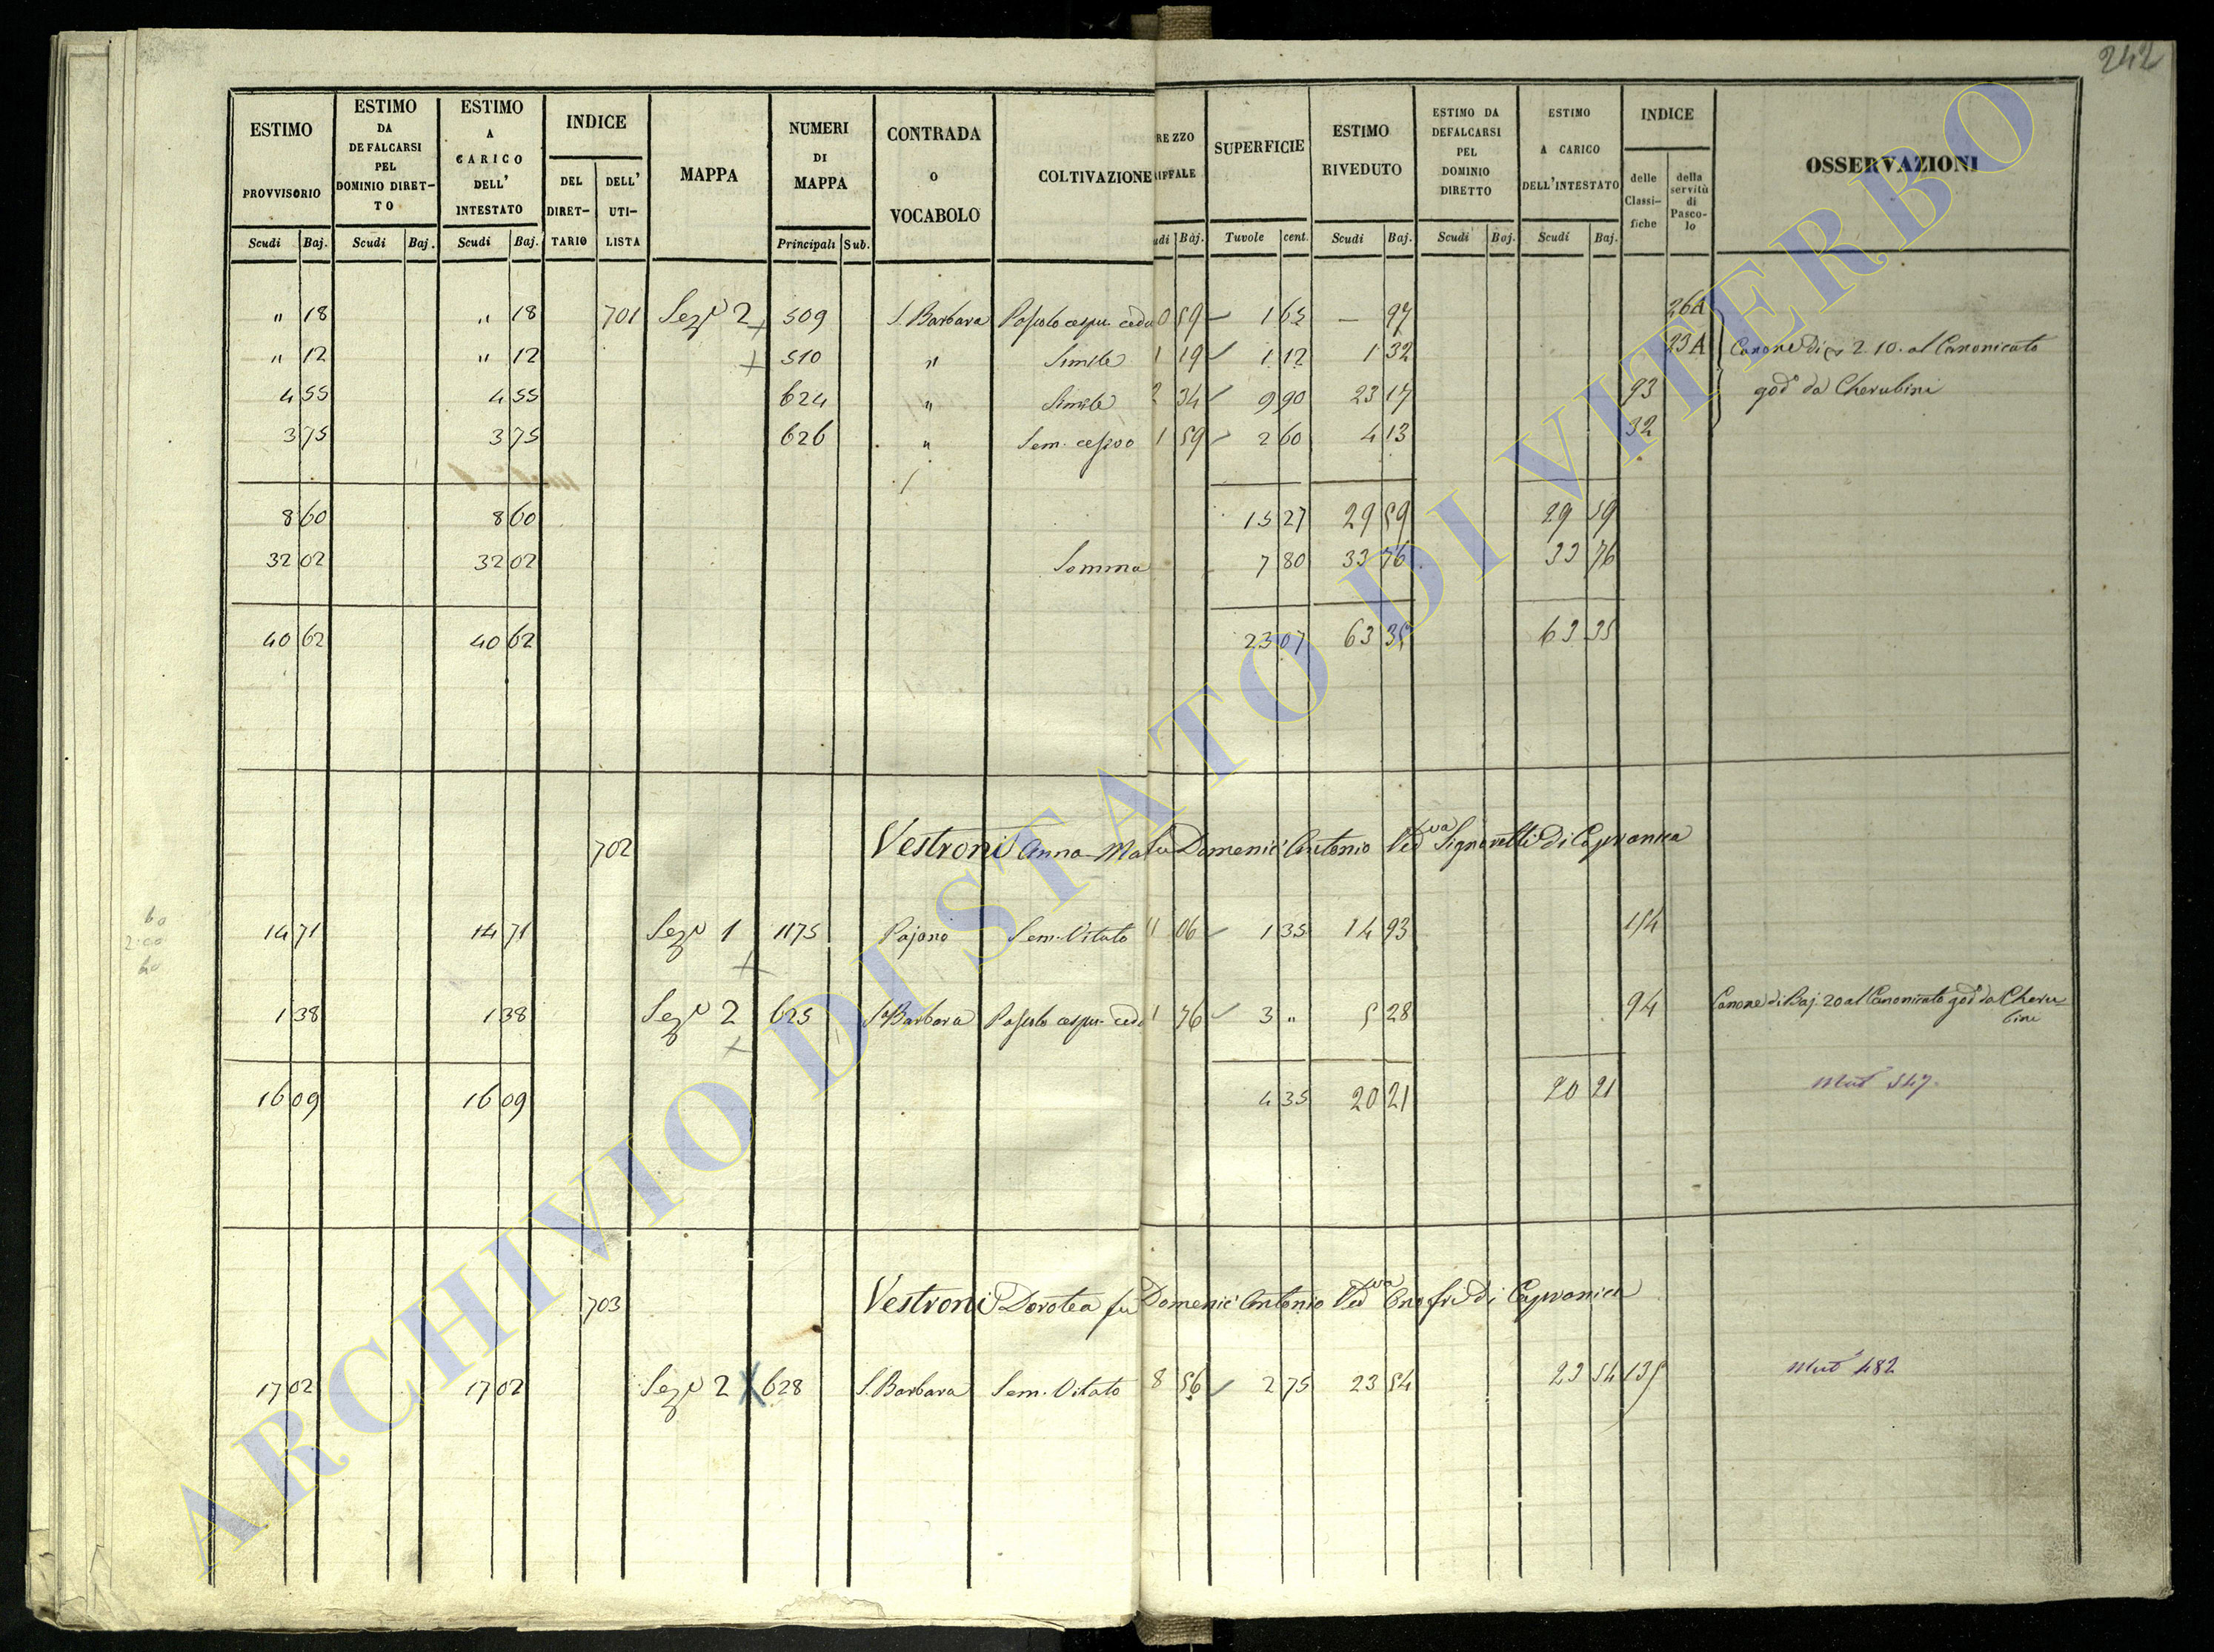 242
ESTIMO PROVVISORIO | ESTIMO DA DEFALCARSI PEL DOMINIO DIRET-TO | ESTIMO A CARICO DELL' INTESTATO | INDICE DEL DIRET-TARIO | DELL' UTI-LISTA | MAPPA | NUMERI DI MAPPA | CONTRADA O VOCABOLO | COLTIVAZIONE | REZZO RIFFALE | SUPERFICIE | ESTIMO RIVEDUTO | ESTIMO DA DEFALCARSI PEL DOMINIO DIRETTO | ESTIMO A CARICO DELL'INTESTATO | INDICE delle Classi-fiche | della servitù di Pasco-lo | OSSERVAZIONI
Scudi | Baj. | Scudi | Baj. | Scudi | Baj. | Principali | Sub. | udi | Baj. | Tavole | cent. | Scudi | Baj. | Scudi | Baj. | Scudi | Baj.
" 18 | " 18 | 701 | Sez.e 2 + | 509 | S. Barbara | Pascolo cespu. cedu | 0 59 | 1 65 | — 97 | 26A
" 12 | " 12 | + | 510 | " | Simile | 1 19 | 1 12 | 1 32 | 23A | Canone di 2 10. al Canonicato
4 55 | 4 55 | 624 | " | Simile | 2 34 | 9 90 | 23 17 | 93 | god.o da Cherubini
3 75 | 3 75 | 626 | " | Sem. cespoo | 1 59 | 2 60 | 4 13 | 32
8 60 | 8 60 | 15 27 | 29 59 | 29 59
32 02 | 32 02 | Somma | 7 80 | 33 76 | 33 76
40 62 | 40 62 | 23 07 | 63 35 | 63 35
702 | Vestroni Anna Ma fu Domenic' Antonio Ved.va Signoretti di Capranica
14 71 | 14 71 | Sez.e 1 + | 1175 | Pajano | Sem. Vitato | 11 06 | 1 35 | 14 93 | 154
1 38 | 1 38 | Sez.e 2 + | 625 | S.a Barbara | Pascolo cespu. cedu | 1 76 | 3 " | 5 28 | 94 | Canone di Baj. 20 al Canonicato god.o da Cheru-
bini
16 09 | 16 09 | 4 35 | 20 21 | 20 21 | Mut.a 547.
703 | Vestroni Dorotea fu Domenic' Antonio Ved.va Onofri di Capranica
17 02 | 17 02 | Sez.e 2 X | 628 | S. Barbara | Sem. Vitato | 8 56 | 2 75 | 23 54 | 23 54 | 135 | Mut.a 482
ARCHIVIO DI STATO DI VITERBO